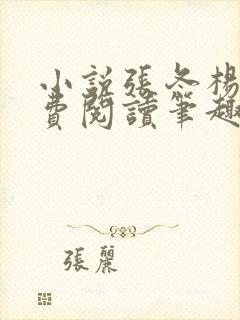 小説張冬楊
費閱讀筆趣
張麗